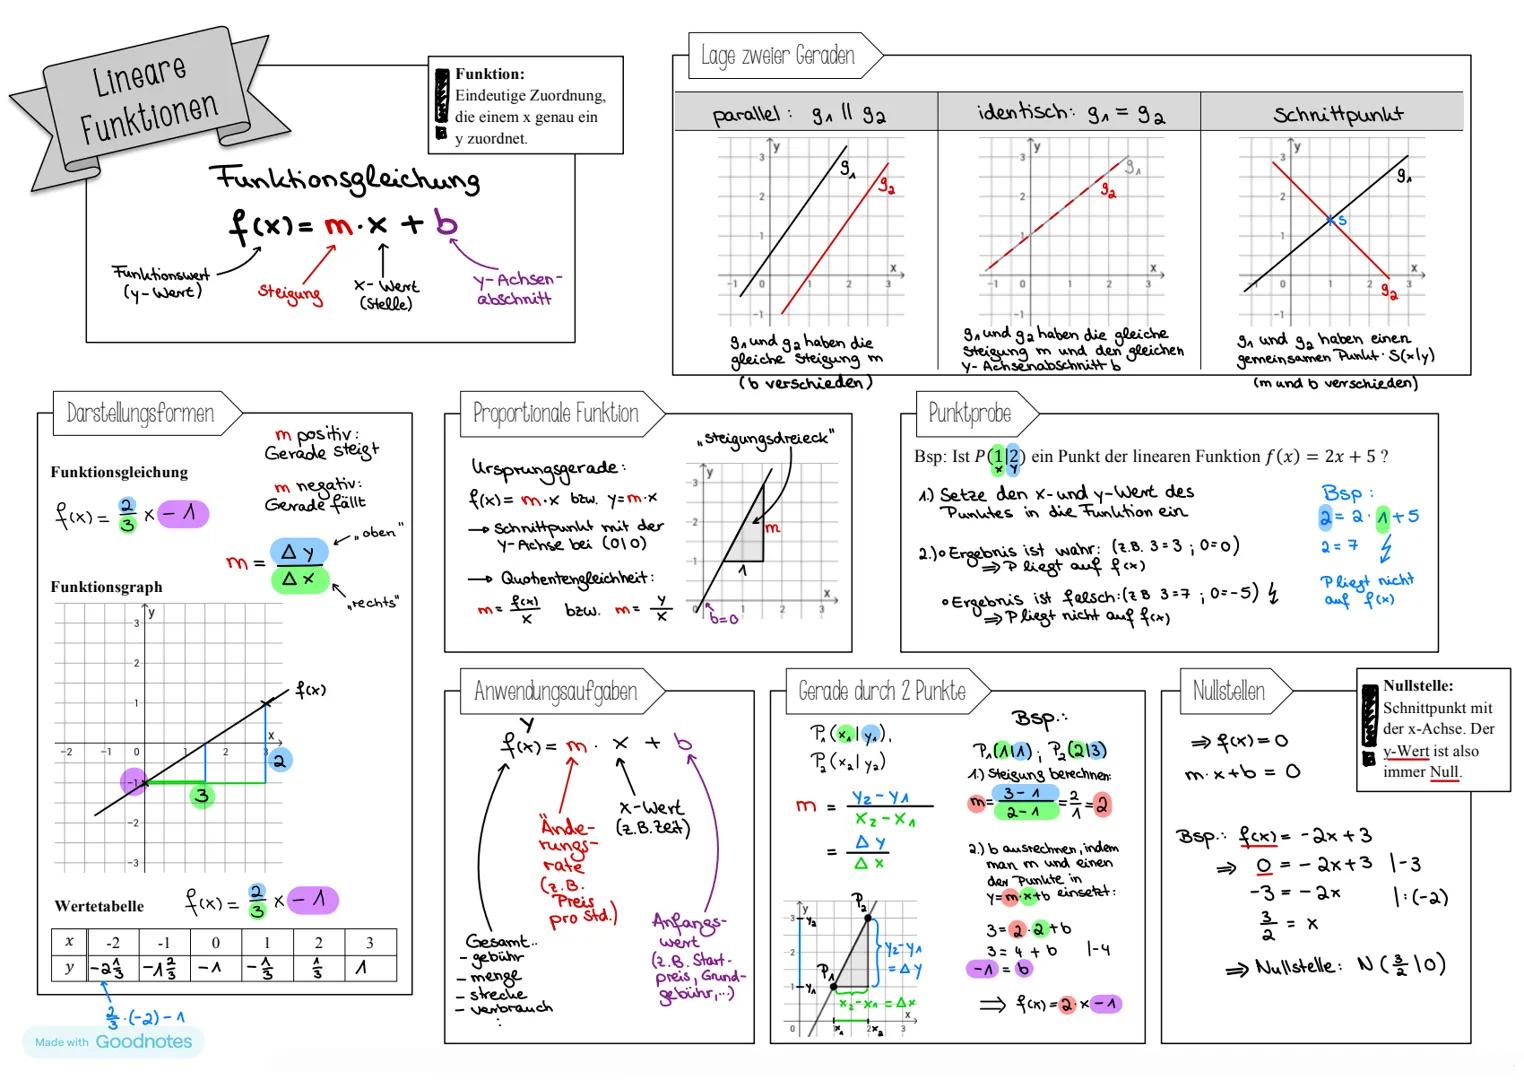 Lineare
Funktionen
Funktion:
Eindeutige Zuordnung,
die einem x genau ein
y zuordnet.
Funktionsgleichung
f(x) = m · x + b
Funktionswert
(y-Wert)
Steigung
x-Wert
(Stelle)
y-Achsen-
abschnitt
Lage zweier Geraden
parallel: g₁ || g₂
identisch: g₁ = g₂
Schnittpunkt
y
3
2
1
-1 0 1 2 3
-1
x
g₁
g₂
y
3
2
1
-1 0 1 2 3
-1
x
g₁
g₂
y
3
2
1
-1 0 1 2 3
-1
x
g₁
S
g₂
g₁ und g₂ haben die
gleiche Steigung m
(b verschieden)
g₁ und g₂ haben die gleiche
Steigung m und den gleichen
y-Achsenabschnitt b
g₁ und g₂ haben einen
gemeinsamen Punkt S(x|y)
(m und b verschieden)
Darstellungsformen
m positiv:
Gerade steigt
Funktionsgleichung
m negativ:
Gerade fällt
f(x) = 2/3 x - 1
m = Δy/Δx
„oben"
„rechts"
Funktionsgraph
y
3
2
1
-2 -1 0 1 2 3
x
-1
-2
-3
f(x)
2
3
Wertetabelle
f(x) = 2/3 x - 1
x -2 -1 0 1 2 3
y -2 1/3 -1 2/3 -1 -1/3 1/3 1
2/3 · (-2) - 1
Made with Goodnotes
Proportionale Funktion
„Steigungsdreieck"
Ursprungsgerade:
f(x) = m·x bzw. y = m·x
→ Schnittpunkt mit der
y-Achse bei (0|0)
→ Quotientengleichheit:
m = f(x)/x bzw. m = y/x
y
3
2
1
0 1 2 3
x
m
1
b=0
Punktprobe
Bsp: Ist P(1|2) ein Punkt der linearen Funktion f(x) = 2x + 5 ?
x y
1.) Setze den x- und y-Wert des
Punktes in die Funktion ein
2.) ∘ Ergebnis ist wahr: (z.B. 3=3 ; 0=0)
⇒ P liegt auf f(x)
∘ Ergebnis ist falsch: (z.B 3=7 ; 0=-5) ↯
⇒ P liegt nicht auf f(x)
Bsp:
2 = 2 · 1 + 5
2 = 7 ↯
P liegt nicht
auf f(x)
Anwendungsaufgaben
y
f(x) = m · x + b
x-Wert
(z.B. Zeit)
Ände-
rungs-
rate
(z.B.
Preis
pro Std.)
Gesamt..
- gebühr
- menge
- strecke
- verbrauch
:
Anfangs-
wert
(z.B. Start-
preis, Grund-
gebühr,...)
Gerade durch 2 Punkte
P₁(x₁|y₁),
P₂(x₂|y₂)
m = y₂-y₁/x₂-x₁
= Δy/Δx
y
3 y₂
2
1 y₁
0 1 2 3
x₁ x₂
x
P₁
P₂
y₂-y₁
= Δy
x₂-x₁ = Δx
Bsp.:
P₁(1|1) ; P₂(2|3)
1.) Steigung berechnen:
m = 3-1/2-1 = 2/1 = 2
2.) b ausrechnen, indem
man m und einen
der Punkte in
y=m·x+b einsetzt:
3 = 2·2+b
3 = 4 + b |-4
-1 = b
⇒ f(x) = 2x-1
Nullstellen
Nullstelle:
Schnittpunkt mit
der x-Achse. Der
y-Wert ist also
immer Null.
⇒ f(x) = 0
m·x+b = 0
Bsp.: f(x) = -2x+3
⇒ 0 = -2x+3 |-3
-3 = -2x |:(-2)
3/2 = x
⇒ Nullstelle: N(3/2|0)